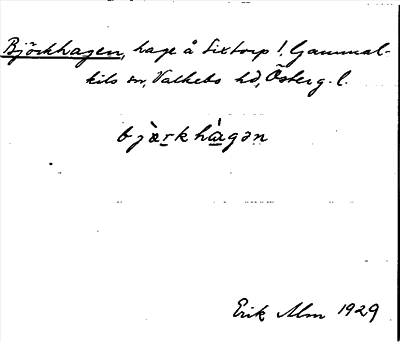 Björkhagen, hage å Sixtorp i Gammal-
kils sn, Valkebo hd, Österg. l.
bjærkhàgən
Erik Alm 1929